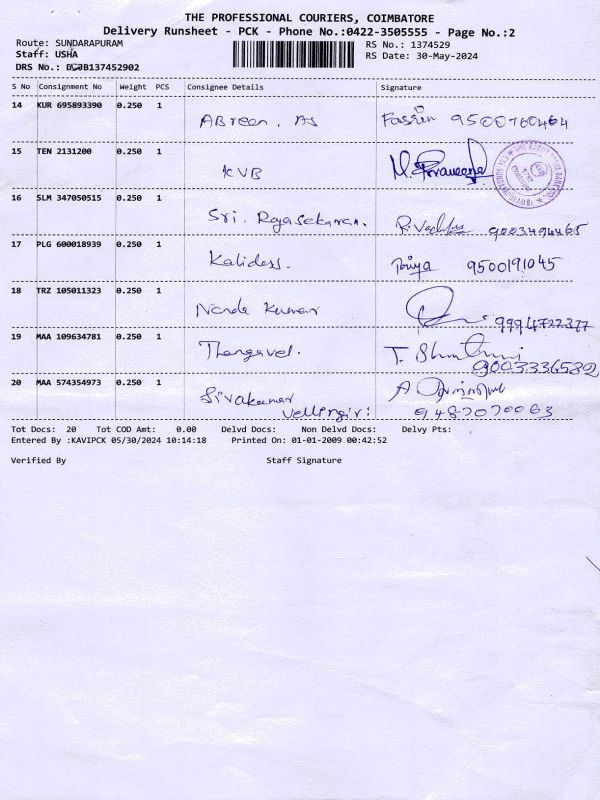 THE PROFESSIONAL COURIERS, COIMBATORE
Delivery Runsheet - PCK - Phone No.:0422-3505555 - Page No.:2
Route: SUNDARAPURAM
RS No.: 1374529
Staff: USHA
RS Date: 30-May-2024
DRS No.: B137452902
S No Consignment No Weight PCS Consignee Details Signature
14 KUR 695893390 0.250 1
ABreen. AS 9500760464
15 TEN 2131200 0.250 1
KVB
16 SLM 347050515 0.250 1
Sri. Rajasekaran. 9003494465
17 PLG 600018939 0.250 1
Kalidass. Priya 9500191045
18 TRZ 105011323 0.250 1
Nanda Kumar 9994722377
19 MAA 109634781 0.250 1
Thangavel. T. 9003336582
20 MAA 574354973 0.250 1
Sivakumar
Vellingiri 9487070063
Tot Docs: 20 Tot COD Amt: 0.00 Delvd Docs: Non Delvd Docs: Delvy Pts:
Entered By :KAVIPCK 05/30/2024 10:14:18 Printed On: 01-01-2009 00:42:52
Verified By Staff Signature